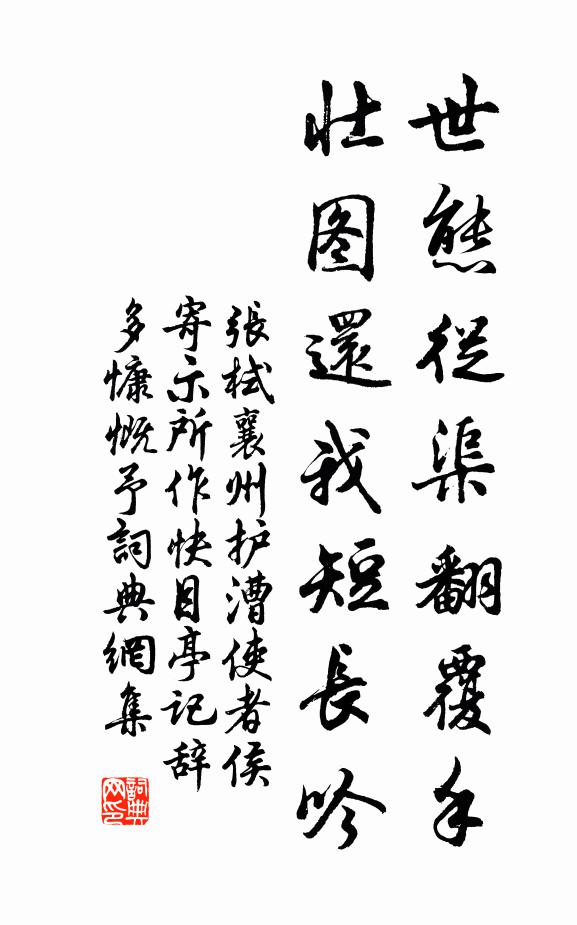 世態從渠翻覆手
壮图還我短長吟
張栻襄州护漕使者侯
寄示所作快目亭记辞
多慷慨予詞典網集
詞典
网印